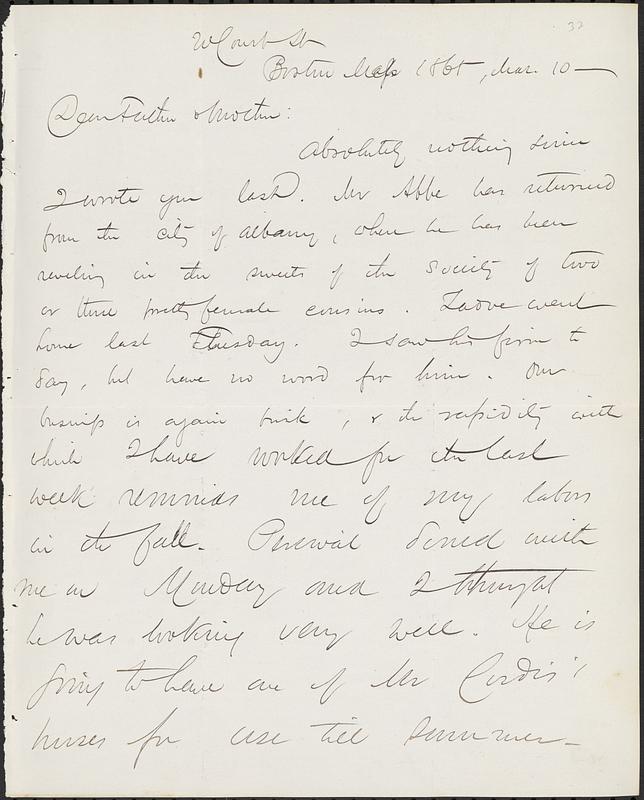 32
20 Court St
Boston Mass 1865, Mar. 10 —
Dear Father & Mother:
Absolutely nothing since
I wrote you last. Mr Abbe has returned
from the city of Albany, where he has been
reveling in the sweets of the society of two
or three pretty female cousins. went
home last Tuesday. I saw his firm to
day, but have no word for him. Our
business is again brisk, & the rapidity with
which I have worked for the last
week reminds me of my labors
in the fall. Percival dined with
me on Monday and I thought
he was looking very well. He is
going to have one of Mr Cordis'
horses for use till summer —